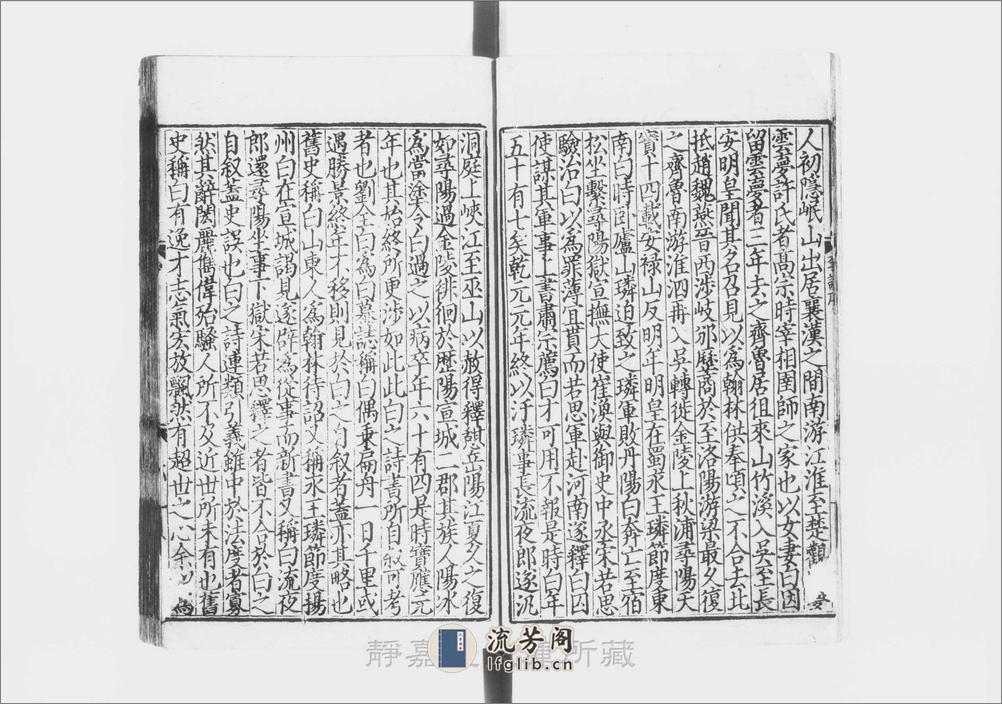 人初隱岷山出居襄漢之間南游江淮至楚觀
雲夢許氏者高宗時宰相圉師之家也以女妻白因
留雲夢者三年去之齊魯居徂來山竹溪入吳至長
安明皇聞其名召見以爲翰林供奉頃之不合去北
抵趙魏燕晉西涉岐邠歷商於至洛陽游梁最久復
之齊魯南游淮泗再入吳轉徙金陵上秋浦尋陽天
寶十四載安祿山反明年明皇在蜀永王璘節度東
南白時臥廬山璘迫致之璘軍敗丹陽白奔亡至宿
松坐繫尋陽獄宣撫大使崔渙與御史中丞宋若思
驗治白以爲罪薄宜貰而若思軍赴河南遂釋白因
使謀其軍事上書肅宗薦白才可用不報是時白年
五十有七矣乾元元年終以汙璘事長流夜郎遂汎
洞庭上峽江至巫山以赦得釋憩岳陽江夏久之復
如尋陽過金陵徘徊於歷陽宣城二郡其族人陽冰
爲當塗令白過之以病卒年六十有四是時寶應元
年也其始終所更涉如此此白之詩書所自叙可考
者也劉全白爲白墓誌稱白偶乘扁舟一日千里或
遇勝景終年不移則見於白之自叙者蓋亦其略也
舊史稱白山東人爲翰林待詔又稱永王璘節度揚
州白在宣城謁見遂辟爲從事而新書又稱白流夜
郎還尋陽坐事下獄宋若思釋之者皆不合於白之
自叙蓋史誤也白之詩連類引義雖中於法度者寡
然其辭閎肆儁偉殆騷人所不及近世所未有也舊
史稱白有逸才志氣宏放飄然有超世之心余
流芳阁
lfglib.cn
靜嘉 所藏